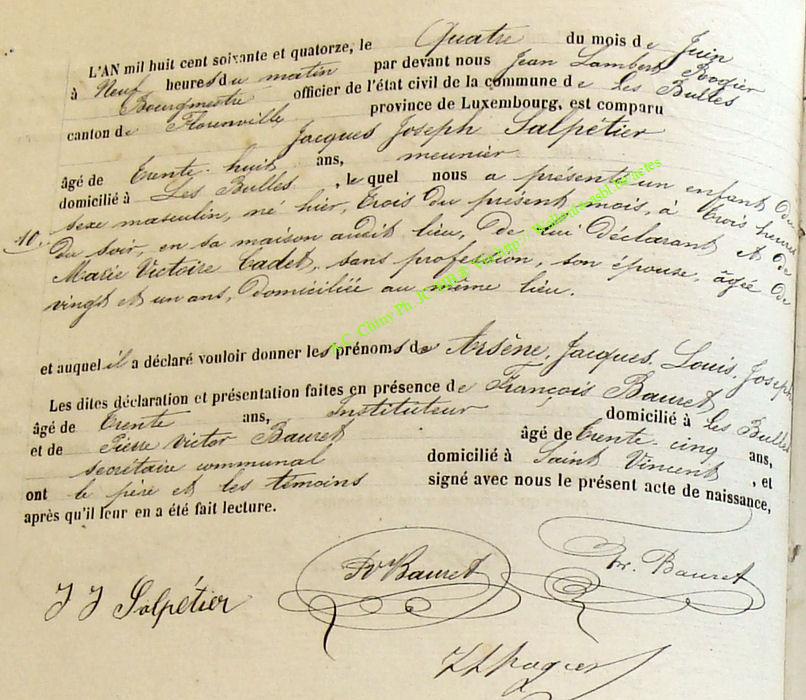 L'AN mil huit cent soixante et quatorze, le Quatre du mois de Juin
à Neuf heures du matin par devant nous Jean Lambert Rogier
Bourgmestre officier de l'état civil de la commune de Les Bulles
canton de Florenville province de Luxembourg, est comparu
Jacques Joseph Salpétier
âgé de trente-huit ans, meunier
domicilié à Les Bulles, le quel nous a présenté un enfant du
10. sexe masculin, né hier, trois du présent mois, à trois heures
du soir, en sa maison audit lieu, de lui déclarant et de
Marie Victoire Cadet, sans profession, son épouse, âgée de
vingt et un ans, domiciliée au même lieu.
et auquel il a déclaré vouloir donner les prénoms de Arsène, Jacques, Louis, Joseph
Les dites déclaration et présentation faites en présence de François Bauret
âgé de trente ans, Instituteur domicilié à Les Bulles
et de Pierre Victor Bauret âgé de trente-cinq ans,
secrétaire communal domicilié à Saint Vincent, et
ont le père et les témoins signé avec nous le présent acte de naissance,
après qu'il leur en a été fait lecture.
J J Salpétier
PV Bauret
Fr. Bauret
J L Rogier